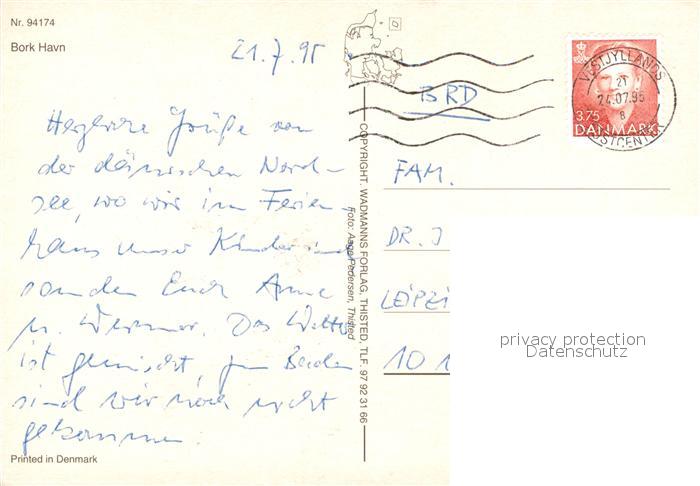 Nr. 94174
Bork Havn
21.7.95
Herzliche Grüße von
der dänischen Nord-
see, wo wir im Ferien-
haus unser Kinder sind
senden Euch Anne
u. Werner. Das Wetter
ist gemischt, zum Baden
sind wir noch nicht
gekommen
Printed in Denmark
COPYRIGHT. WADMANNS FORLAG, THISTED, TLF. 97 92 31 66
Foto: Aage Pedersen, Thisted
VESTJYLLANDS
21
24.07.95
8
POSTCENTER
3.75
DANMARK
BRD
FAM.
DR. J
LEIPZI
10 1
privacy protection
Datenschutz